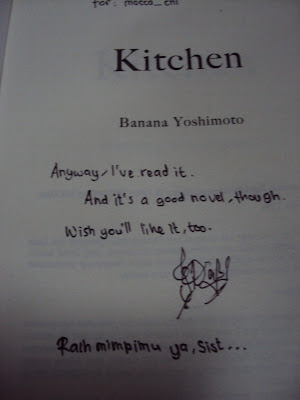 for: mocca_chi
Kitchen
Banana Yoshimoto
Anyway, I've read it.
And it's a good novel, though.
Wish you'll like It, too.
Raih mimpimu ya, Sist...